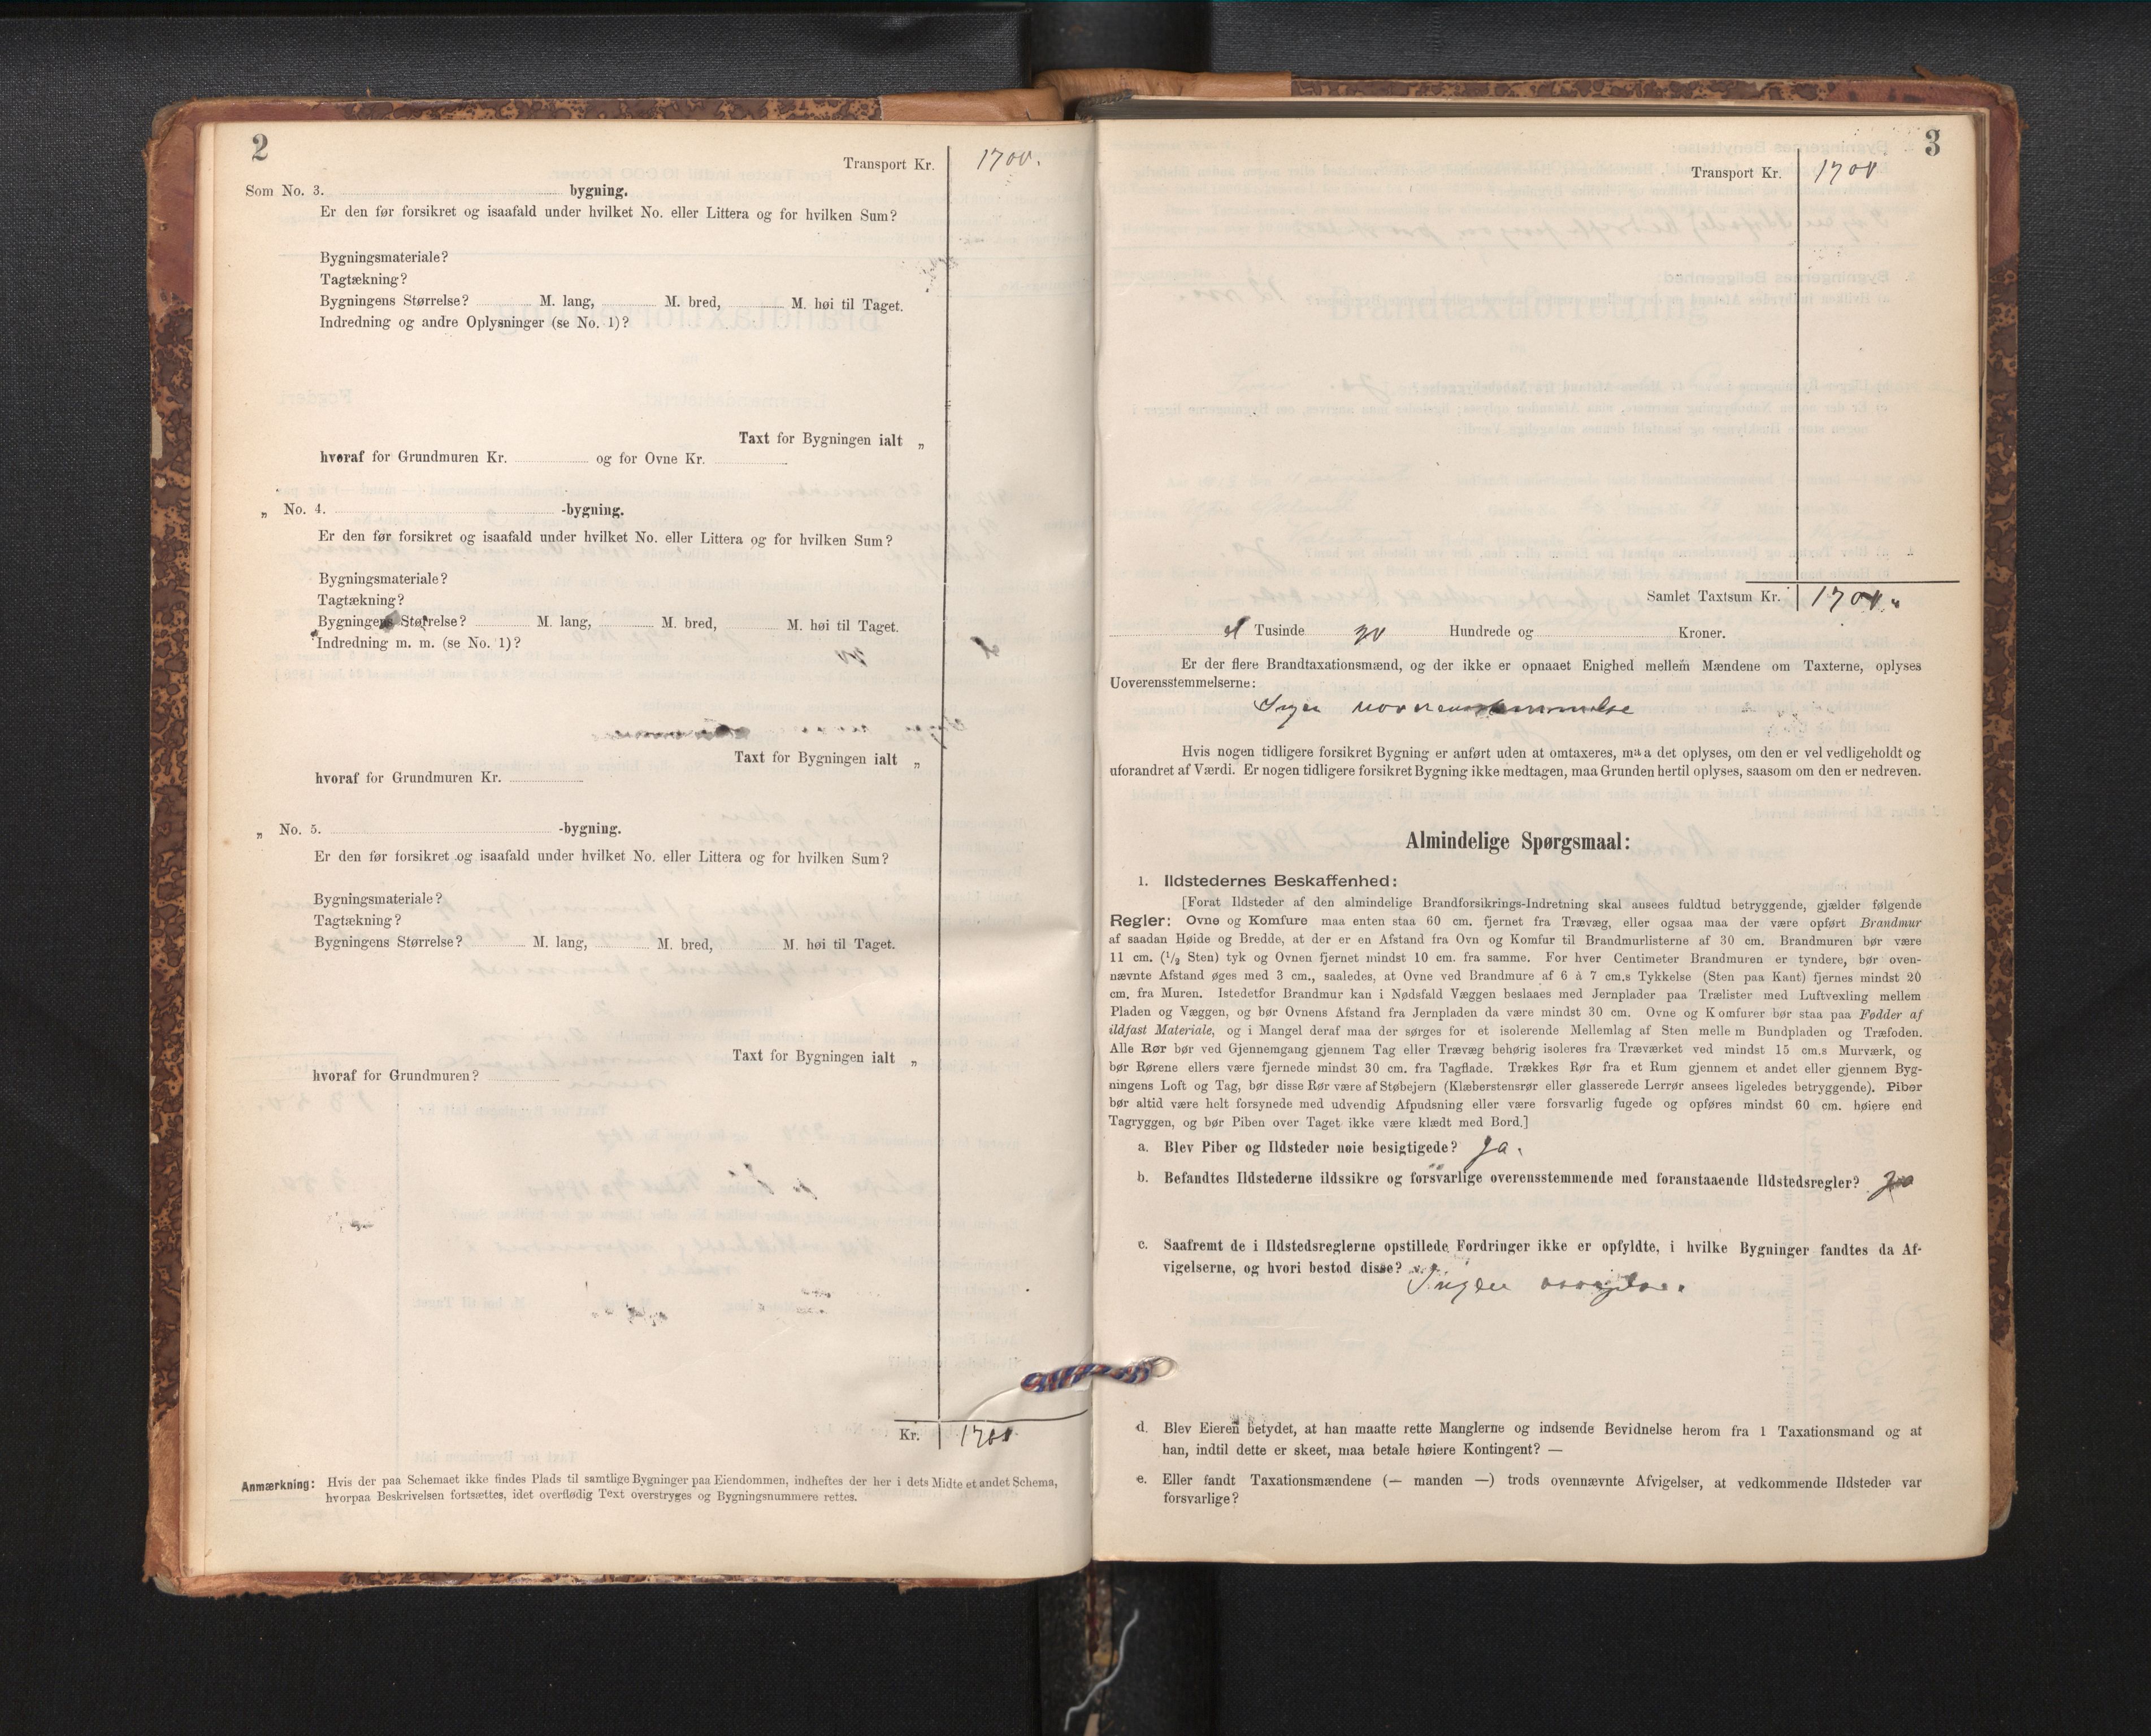 2
Transport Kr. 1700.
Som No. 3. bygning.
Er den før forsikret og isaafald under hvilket No. eller Littera og for hvilken Sum?
Bygningsmateriale?
Tagtækning?
Bygningens Størrelse? M. lang, M. bred, M. høi til Taget.
Indredning og andre Oplysninger (se No. 1)?
Taxt for Bygningen ialt „
hvoraf for Grundmuren Kr. og for Ovne Kr.
„ No. 4. -bygning.
Er den før forsikret og isaafald under hvilket No. eller Littera og for hvilken Sum?
Bygningsmateriale?
Tagtækning?
Bygningens Størrelse? M. lang, M. bred, M. høi til Taget.
Indredning m. m. (se No. 1)?
Taxt for Bygningen ialt „
hvoraf for Grundmuren Kr.
„ No. 5. -bygning.
Er den før forsikret og isaafald under hvilket No. eller Littera og for hvilken Sum?
Bygningsmateriale?
Tagtækning?
Bygningens Størrelse? M. lang, M. bred, M. høi til Taget.
Taxt for Bygningen ialt „
hvoraf for Grundmuren?
Kr. 1700
Anmærkning: Hvis der paa Schemaet ikke findes Plads til samtlige Bygninger paa Eiendommen, indheftes der her i dets Midte et andet Schema,
hvorpaa Beskrivelsen fortsættes, idet overflødig Text overstryges og Bygningsnummere rettes.
3
Transport Kr. 1700
Samlet Taxtsum Kr. 1700.
et Tusinde Hundrede og Kroner.
Er der flere Brandtaxationsmænd, og der ikke er opnaaet Enighed mellem Mændene om Taxterne, oplyses
Uoverensstemmelserne:
Ingen uoverensstemmelse
Hvis nogen tidligere forsikret Bygning er anført uden at omtaxeres, maa det oplyses, om den er vel vedligeholdt og
uforandret af Værdi. Er nogen tidligere forsikret Bygning ikke medtagen, maa Grunden hertil oplyses, saasom om den er nedreven.
Almindelige Spørgsmaal:
1. Ildstedernes Beskaffenhed:
[Forat Ildsteder af den almindelige Brandforsikrings-Indretning skal ansees fuldtud betryggende, gjælder følgende
Regler: Ovne og Komfure maa enten staa 60 cm. fjernet fra Trævæg, eller ogsaa maa der være opført Brandmur
af saadan Høide og Bredde, at der er en Afstand fra Ovn og Komfur til Brandmurlisterne af 30 cm. Brandmuren bør være
11 cm. (1/2 Sten) tyk og Ovnen fjernet mindst 10 cm. fra samme. For hver Centimeter Brandmuren er tyndere, bør oven-
nævnte Afstand øges med 3 cm., saaledes, at Ovne ved Brandmure af 6 à 7 cm.s Tykkelse (Sten paa Kant) fjernes mindst 20
cm. fra Muren. Istedetfor Brandmur kan i Nødsfald Væggen beslaaes med Jernplader paa Trælister med Luftvexling mellem
Pladen og Væggen, og bør Ovnens Afstand fra Jernpladen da være mindst 30 cm. Ovne og Komfurer bør staa paa Fødder af
ildfast Materiale, og i Mangel deraf maa der sørges for et isolerende Mellemlag af Sten mellem Bundpladen og Træfoden.
Alle Rør bør ved Gjennemgang gjennem Tag eller Trævæg behørig isoleres fra Træværket ved mindst 15 cm.s Murværk, og
bør Rørene ellers være fjernede mindst 30 cm. fra Tagflade. Trækkes Rør fra et Rum gjennem et andet eller gjennem Byg-
ningens Loft og Tag, bør disse Rør være af Støbejern (Klæberstensrør eller glasserede Lerrør ansees ligeledes betryggende). Piber
bør altid være helt forsynede med udvendig Afpudsning eller være forsvarlig fugede og opføres mindst 60 cm. høiere end
Tagryggen, og bør Piben over Taget ikke være klædt med Bord.]
a. Blev Piber og Ildsteder nøie besigtigede? Ja.
b. Befandtes Ildstederne ildssikre og forsvarlige overensstemmende med foranstaaende Ildstedsregler? Ja
c. Saafremt de i Ildstedsreglerne opstillede Fordringer ikke er opfyldte, i hvilke Bygninger fandtes da Af-
vigelserne, og hvori bestod disse?
Ingen
d. Blev Eieren betydet, at han maatte rette Manglerne og indsende Bevidnelse herom fra 1 Taxationsmand og at
han, indtil dette er skeet, maa betale høiere Kontingent? —
e. Eller fandt Taxationsmændene (— manden —) trods ovennævnte Afvigelser, at vedkommende Ildsteder var
forsvarlige?